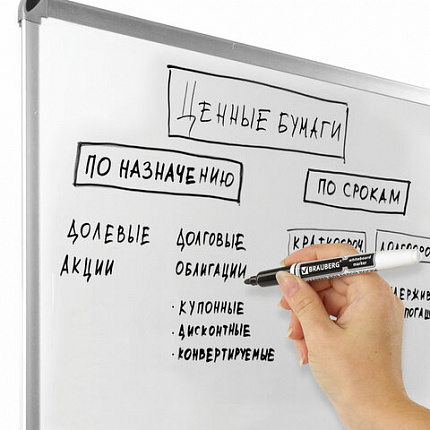 ЦЕННЫЕ БУМАГИ
ПО НАЗНАЧЕНИЮ
ПО СРОКАМ
ДОЛЕВЫЕ
АКЦИИ
ДОЛГОВЫЕ
ОБЛИГАЦИИ
· КУПОННЫЕ
· ДИСКОНТНЫЕ
· КОНВЕРТИРУЕМЫЕ
BRAUBERG whiteboard marker